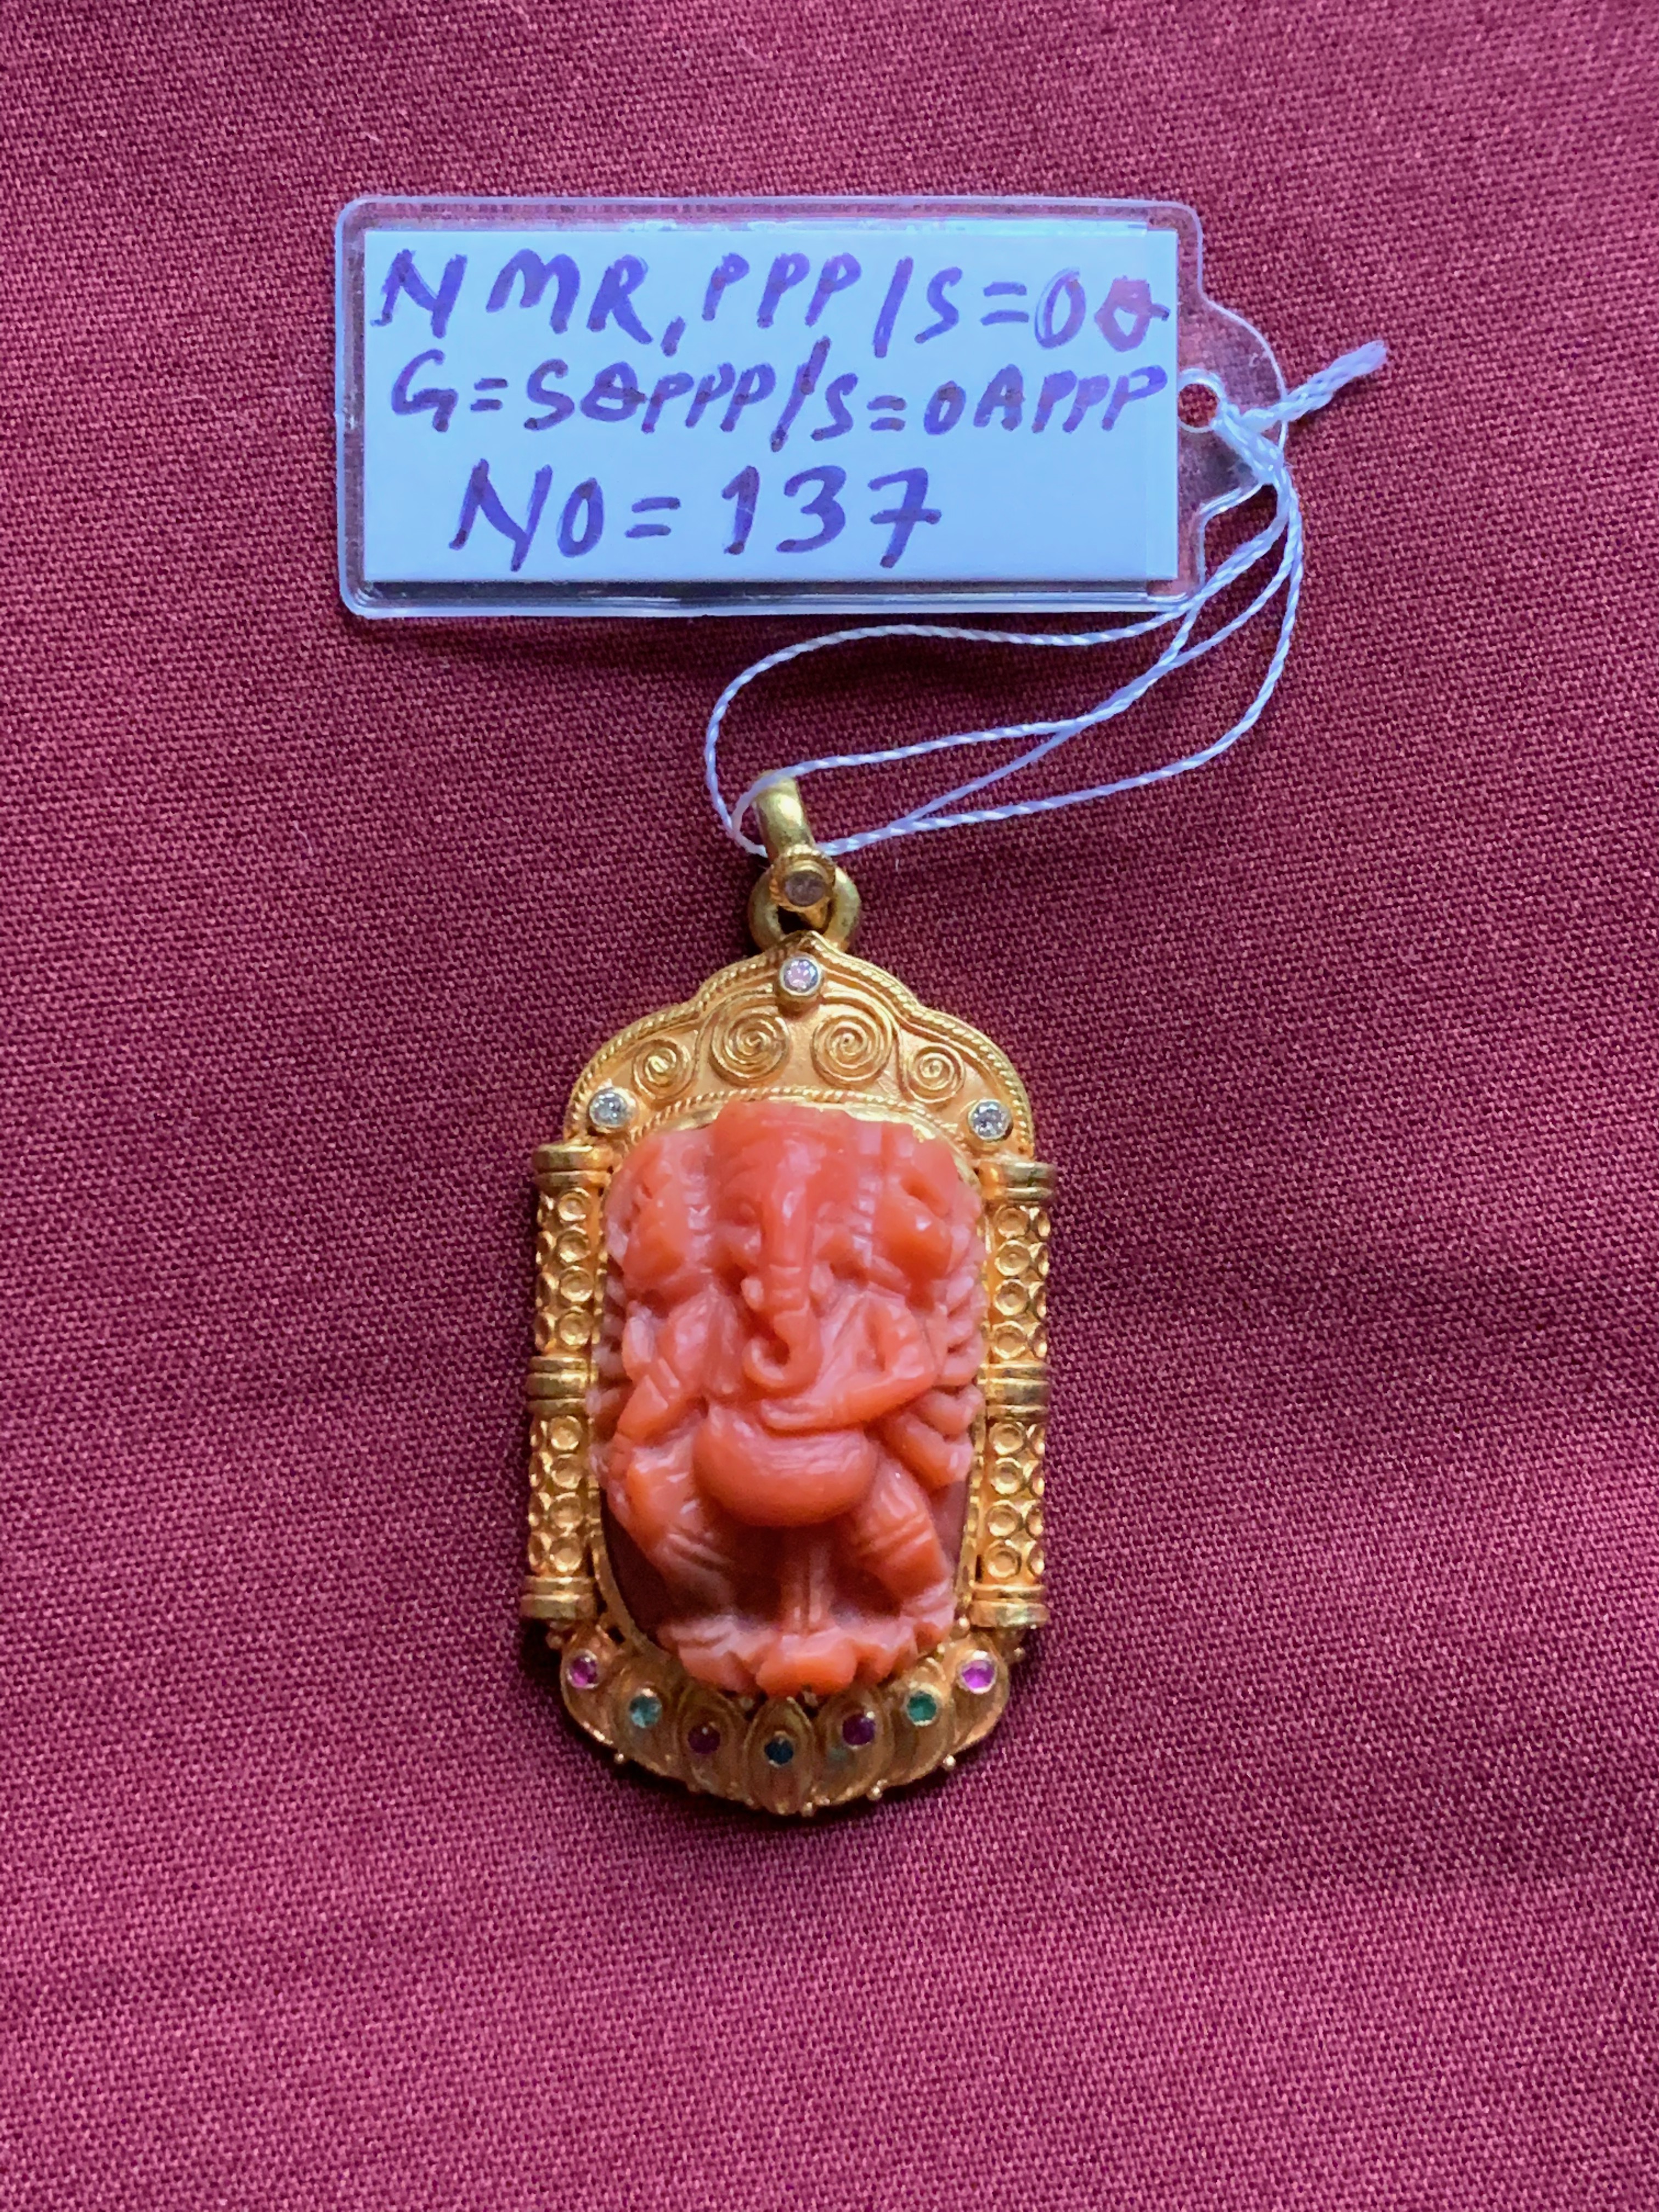 NMR, PPP/S=00
G=S0PPP/S=0APPP
NO=137